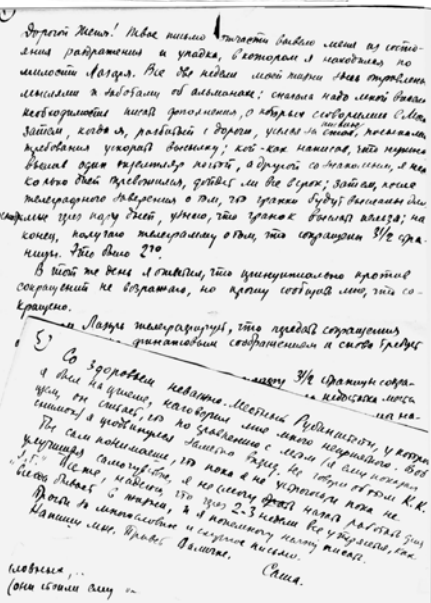 Дорогой Женя! Твое письмо отчасти вывело меня из состо-
яния раздражения и упадка, в котором я находился по
милости Лазаря. Все две недели моей жизни здесь отравлены
мыслями и заботами об альманахе: сначала надо мной висела
необходимость писать дополнения, о которых сговорились с
затем, когда я, разбитый с дороги, уселся за стол, посыпались
требования ускорить высылку; кой-как написав, что нужно
выслав один экземпляр почтой, а другой со знакомым, я
дней тревожился, дойдет ли все в срок; затем, после
телеграфного заверения о том, что гранки будут высланы
через пару дней, узнаю, что гранок выслать нельзя; на-
конец, получаю телеграмму о том, что сокращены 3 1/2 стра-
ницы. Это было 2го.
В тот же день я ответил, что принципиально против
сокращений не возражаю, но прошу сообщить мне, что со-
кращено.
Лазарь телеграфирует, что передать сокращения
финансовым соображениям и снова требует
3 1/2 страницы сокра-
недостатка места
на-
5)
Со здоровьем неважно. Местный Рубинштейн, у которого
я был на приеме, наговорил мне много неприятного. В об-
щем, он считает, что по сравнению с летом (я ему показал
снимок) я продвинулся заметно вниз. Не говори об этом К.К.
Ты сам понимаешь, что пока я не устроюсь и пока не
улучшится самочувствие, я не смогу начать работать для
Все же, надеюсь, что через 2-3 недели все утрясется, как
всегда бывает в жизни, и я понемногу начну писать.
Прости за многословное и скучное письмо.
Напиши мне. Привет Валичке.
Саша.
словных,..
(они стоили ему